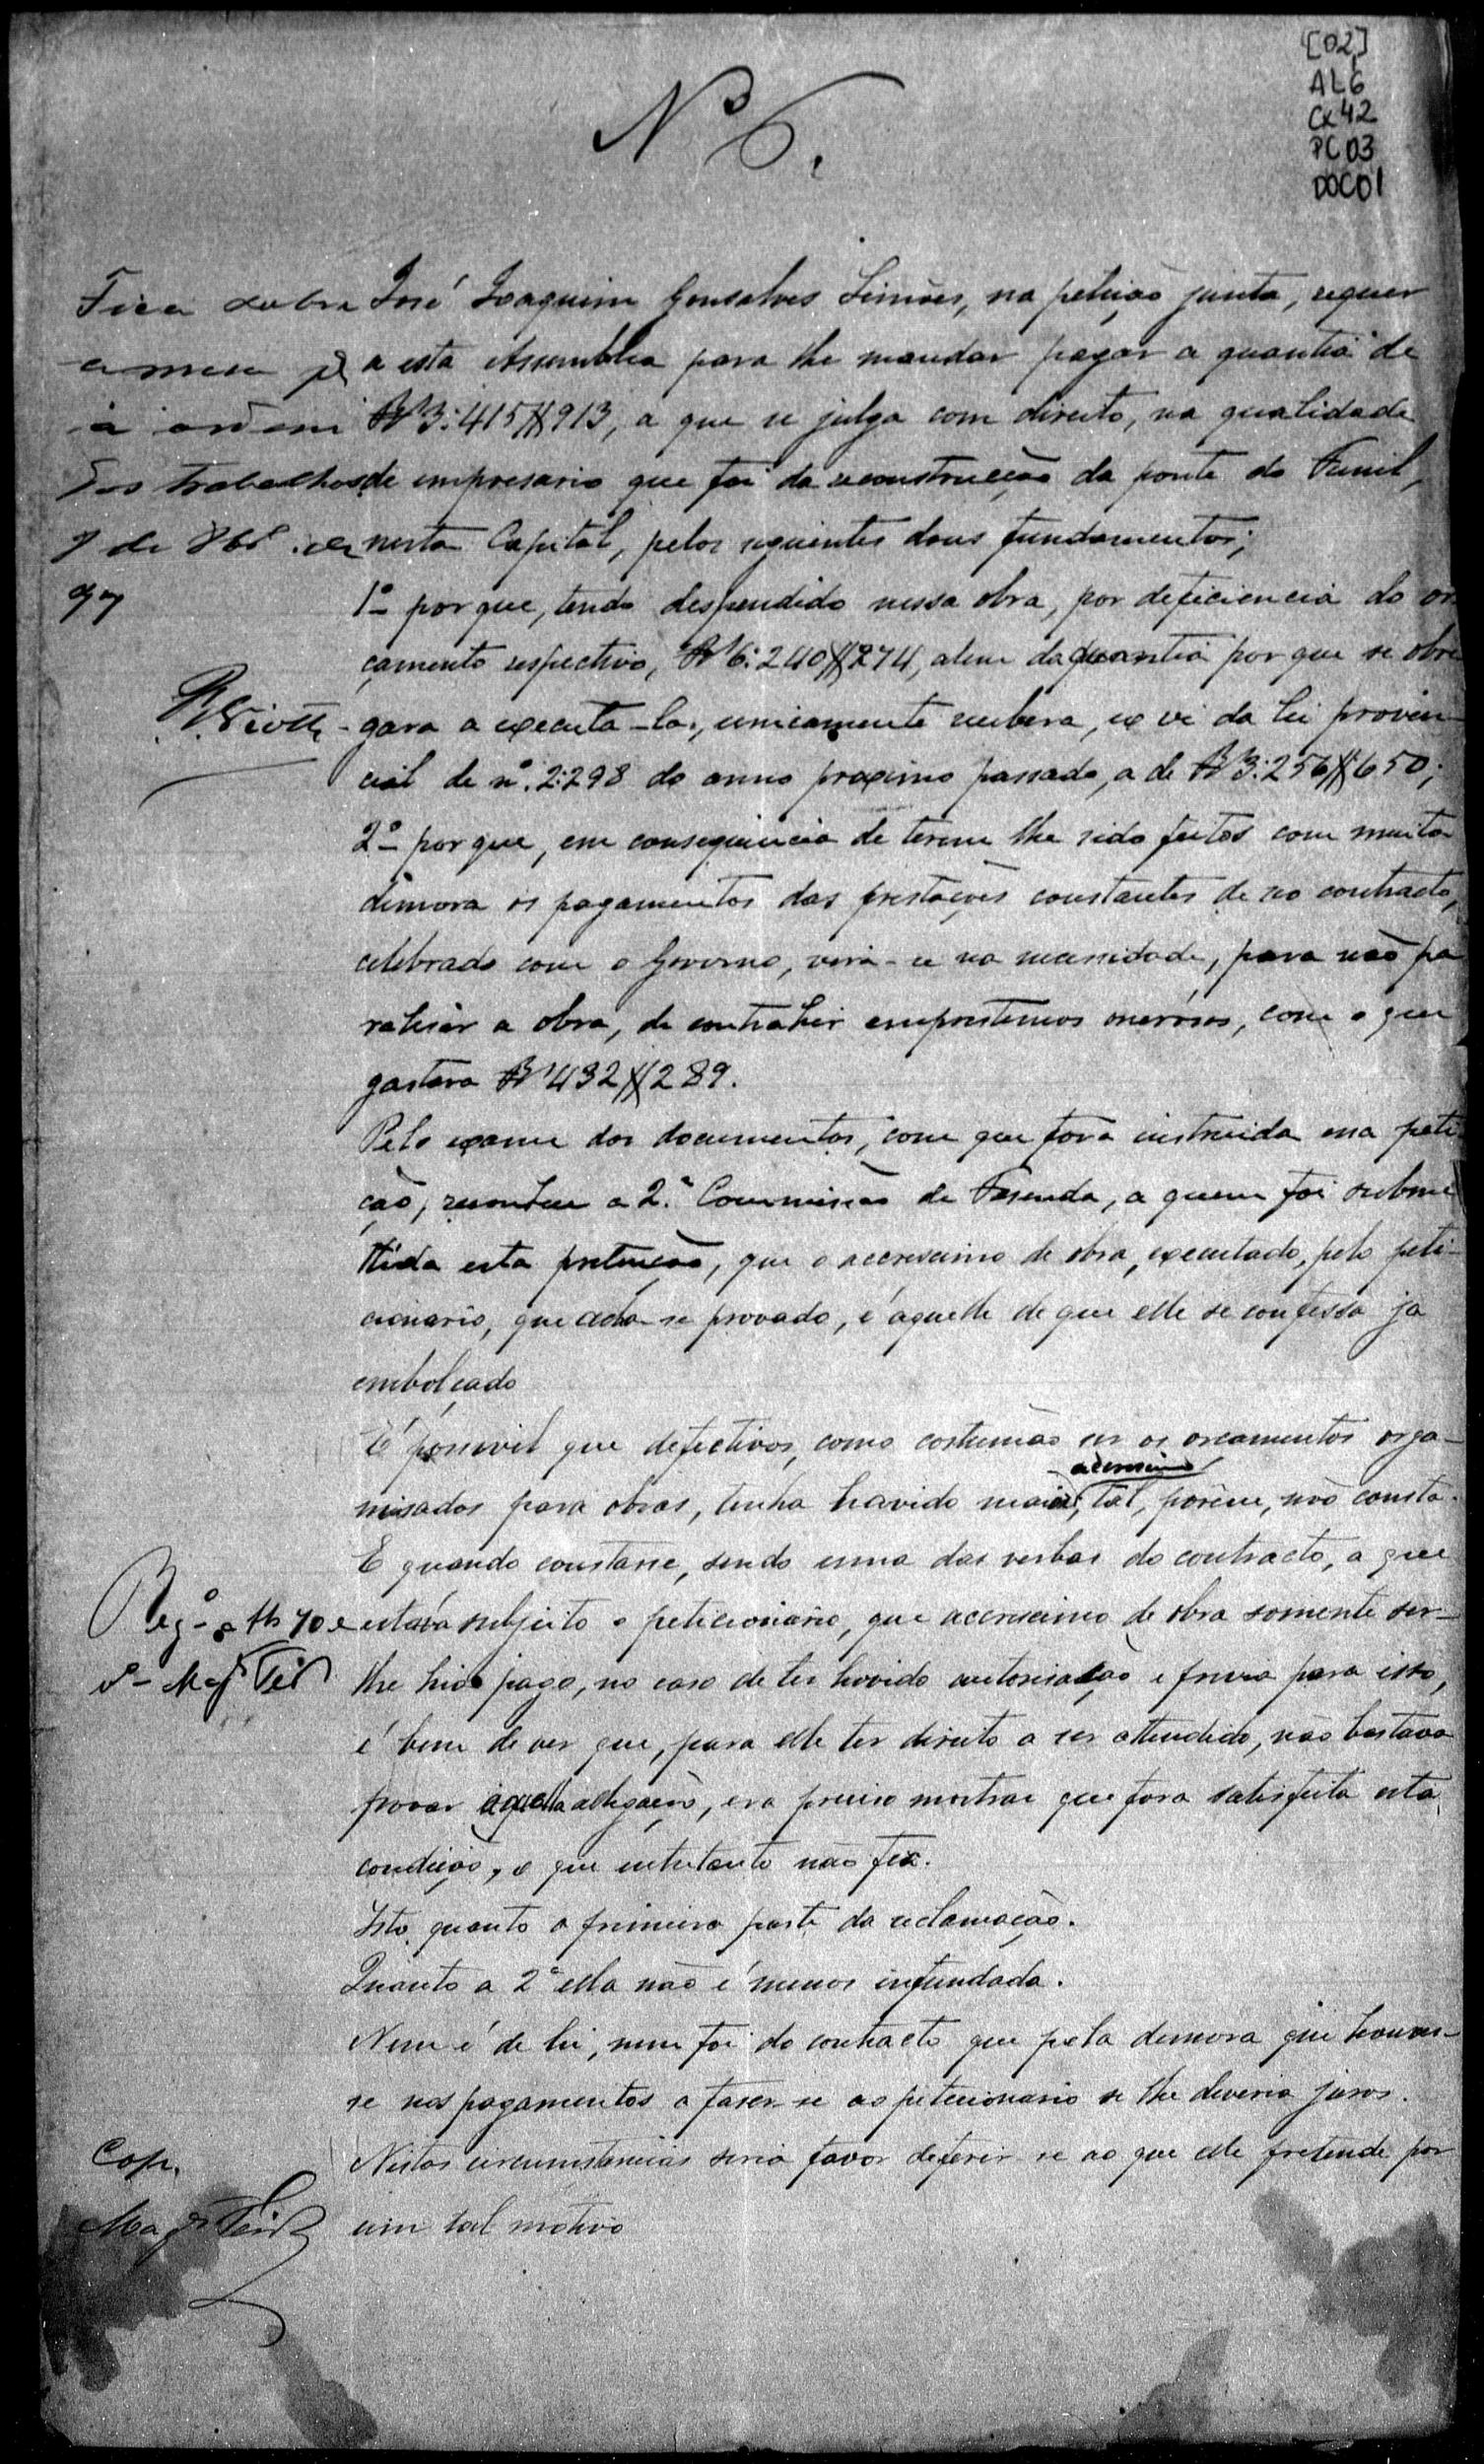 [02]
AL6
Cx42
PC03
DOC01
Nº 6.
Fica sobre
a mesa pª
a ordem
dos trabalhos
9 de 8brº de
77
José Joaquim Gonsalves Simões, na petição junta, requer
a esta Assemblea para lhe mandar pagar a quantia de
Rs 3:415$913, a que se julga com direito, na qualidade
de empresario que foi da reconstrucção da ponte do Funil,
nesta Capital, pelos seguintes dous fundamentos;
1º porque, tendo despendido nessa obra, por deficiencia do or
çamento respectivo, Rs 6:240$274, alem da quantia por que se obri
gara a executa-la, unicamente recebera, ex vi da lei provin-
cial de nº. 2:298 do anno proximo passado, a de Rs 3:256$650;
2º porque, em consequencia de terem lhe sido feitos com muita
demora os pagamentos das prestações constantes de seo contracto,
celebrado com o Governo, vira-se na necessidade, para não pa
ralisar a obra, de contrahir emprestimos onerosos, com o que
gastara Rs 432$289.
Pelo exame dos documentos, com que fora instruida essa peti
ção, reconheceu a 2ª Commissão de Fasenda, a quem foi subme
ttida esta pretenção, que o accrescimo de obra, executado, pelo peti-
cionario, que acha-se provado, é aquelle de que elle se confessa ja
embolçado
É possivel que defectivos, como costumão ser os orcamentos orga-
nisados para obras, tenha havido maior accrescimo, tal, porem, não consta.
E quando constasse, sendo uma das verbas do contracto, a que
estava subjeito o peticionario, que accrescimo de obra somente ser-
lhe hia pago, no caso de ter havido autorisação e previa para isso,
é bem de ver que, para elle ter direito a ser attendido, não bastava
provar aquella allegação, era preciso mostrar que fora satisfeita esta
condição, o que entretanto não fez.
Isto quanto a primeira parte da reclamação.
Quanto a 2ª ella não é menos infundada.
Nem é de lei, nem foi do contracto que pela demora que houves-
se nos pagamentos a faser-se ao peticionario se lhe deveria juros.
Nestas circumstancias seria favor deferir-se ao que elle pretende por
um tal motivo
Regº a fls 70 e
Cop.